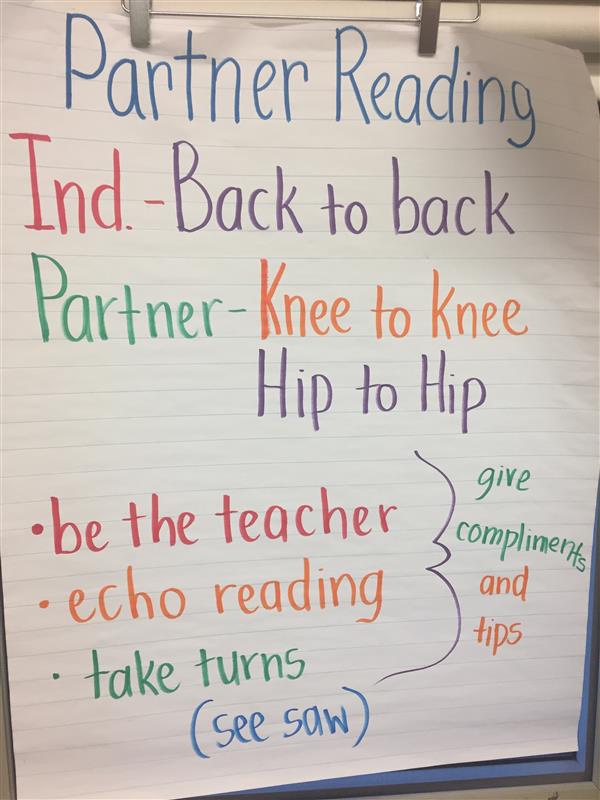 Partner Reading
Ind. - Back to back
Partner - Knee to Knee
Hip to Hip
• be the teacher
• echo reading
• take turns
(see saw)
give
compliments
and
tips